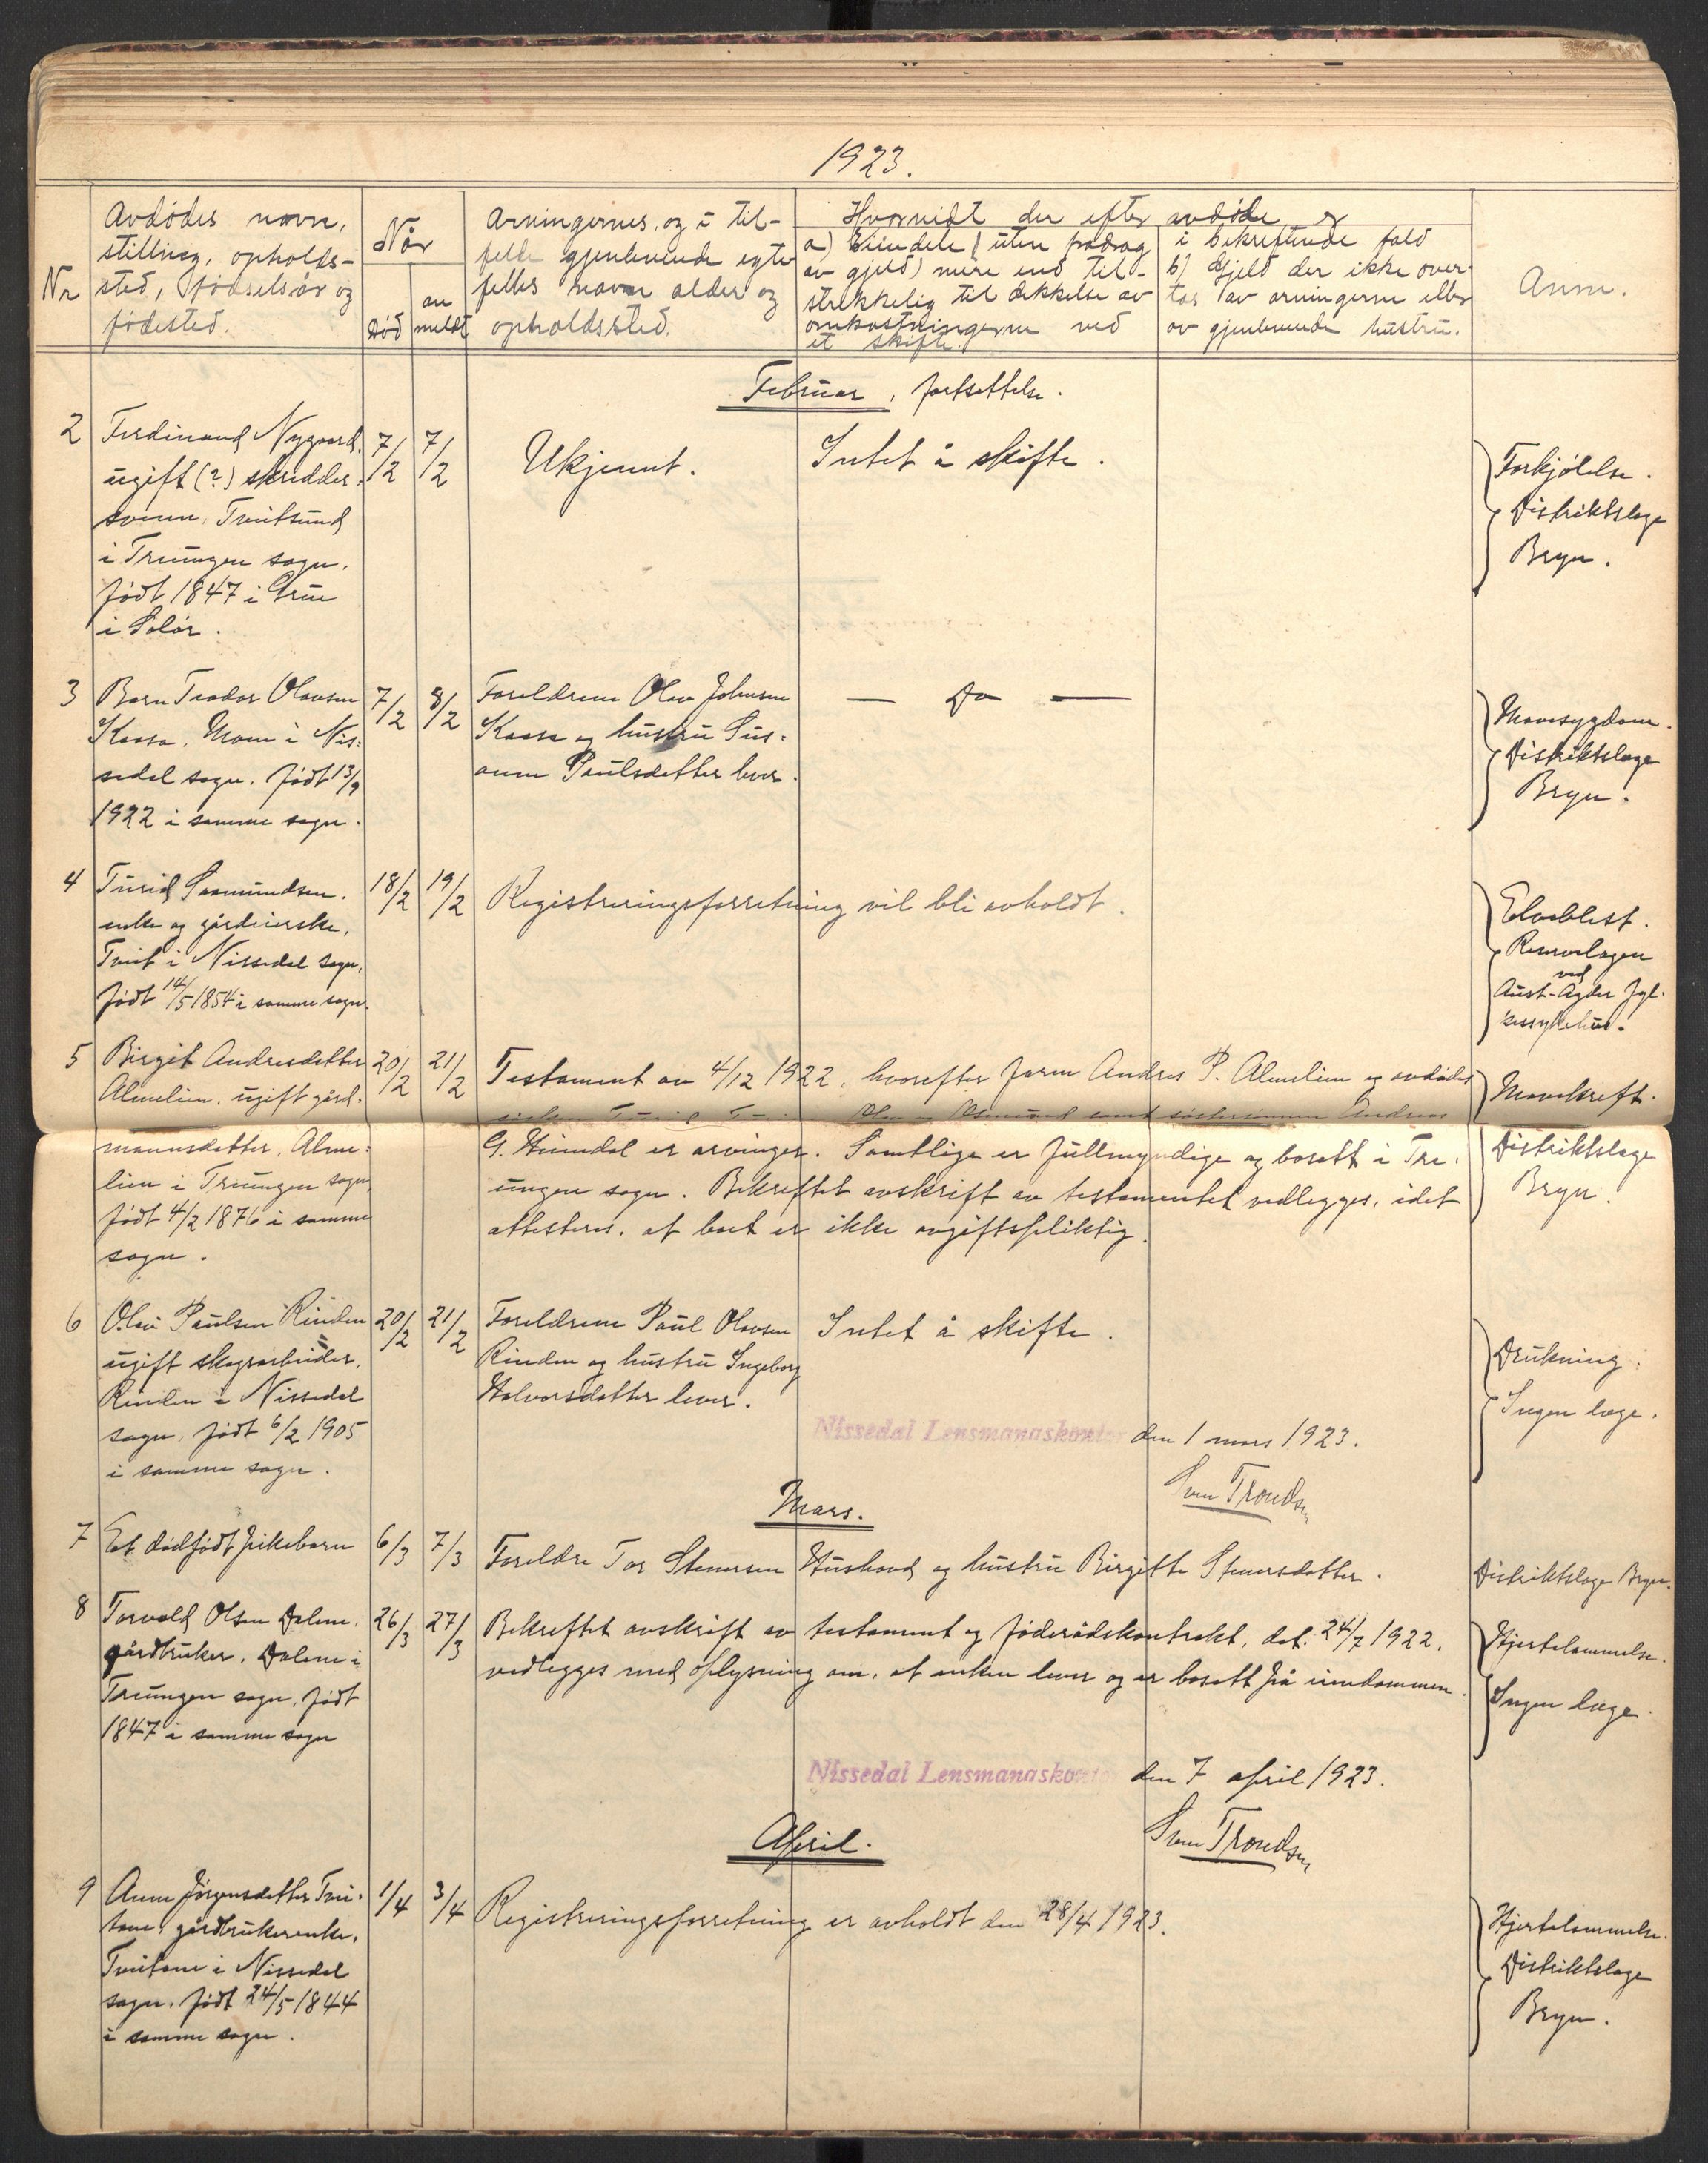 1923.
Nr
Avdødes navn,
stilling, opholds-
sted, fødselsår og
fødested.
Når
død
an
meldt
Arvingernes, og i til-
felde gjenlevende egte
felles navn alder og
opholdssted.
Hvorvidt der efter avdøde er
a) Eiendele (uten fradrag
av gjeld) mere end til-
strekkelig til dekkelse av
omkostningerne ved
et skifte.
i bekreftende fald
b) Gjeld der ikke over-
tas av arvingerne eller
av gjenlevende hustru.
Anm.
Februar, fortsettelse.
2
Ferdinand Nygaard,
ugift (?) skredder-
svenn, Tveitsund
i Treungen sogn.
født 1847 i Grue
i Solør.
7/2
7/2
Ukjennt.
Intet å skifte.
Forkjølelse.
Distriktslæge
Bryn.
3
Barn Teodor Olavsen
Kaasa, Moen i Nis-
sedal sogn. Født 13/9
1922 i samme sogn.
7/2
8/2
Foreldrene Olav Johnsen
Kaasa og hustru Sus-
anne Paulsdatter lever.
— Do —
Mavesygdom.
Distriktslæge
Bryn.
4
Turid Saamundsen.
enke og gårdeierske,
Tveit i Nissedal sogn,
født 14/5 1854 i samme sogn.
18/2
19/2
Registreringsforretning vil bli avholdt.
Reservelægen
ved
Aust-Agder fyl-
kessykehus.
5
Birgit Andresdatter
Almelien, ugift gård-
mannsdatter, Alme-
lien i Treungen sogn,
født 4/2 1876 i samme
sogn.
20/2
21/2
Testament av 4/12 1922, hvorefter faren Andres P. Almelien og avdødes
G. Heimdal er arvinger. Samtlige er fullmyndige og bosatt i Tre-
ungen sogn. Bekreftet avskrift av testamentet vedlegges, idet
attesteres, at boet er ikke avgiftspliktig.
Mavekreft.
Distriktslæge
Bryn.
6
Olav Paulsen Rinden
ugift skogsarbeider,
Rinden i Nissedal
sogn, født 6/2 1905
i samme sogn.
20/2
21/2
Foreldrene Paul Olavsen
Rinden og hustru Ingeborg
Halvorsdatter lever.
Intet å skifte.
Drukning.
Ingen læge.
Nissedal Lensmannskontor den 1 mars 1923.
Sven Trondsen
Mars.
7
Et dødfødt pikebarn
6/3
7/3
Foreldre Tor Stenersen Hushovd og hustru Birgitte Stenersdatter.
Distriktslæge Bryn.
8
Torvald Olsen Dalene,
gårdbruker, Dalene i
Treungen sogn, født
1847 i samme sogn
26/3
27/3
Bekreftet avskrift av testament og føderådskontrakt, dat. 24/7 1922,
vedlegges med oplysning om, at enken lever og er bosatt på eiendommen.
Hjertelammelse.
Ingen læge.
Nissedal Lensmannskontor den 7 april 1923.
Sven Trondsen
April.
9
Anne Jørgensdatter Tvei-
tane, gårdbrukerenke,
Tveitane i Nissedal
sogn, født 24/5 1844
i samme sogn.
1/4
3/4
Registreringsforretning er avholdt den 28/4 1923.
Hjertelammelse.
Distriktslæge
Bryn.